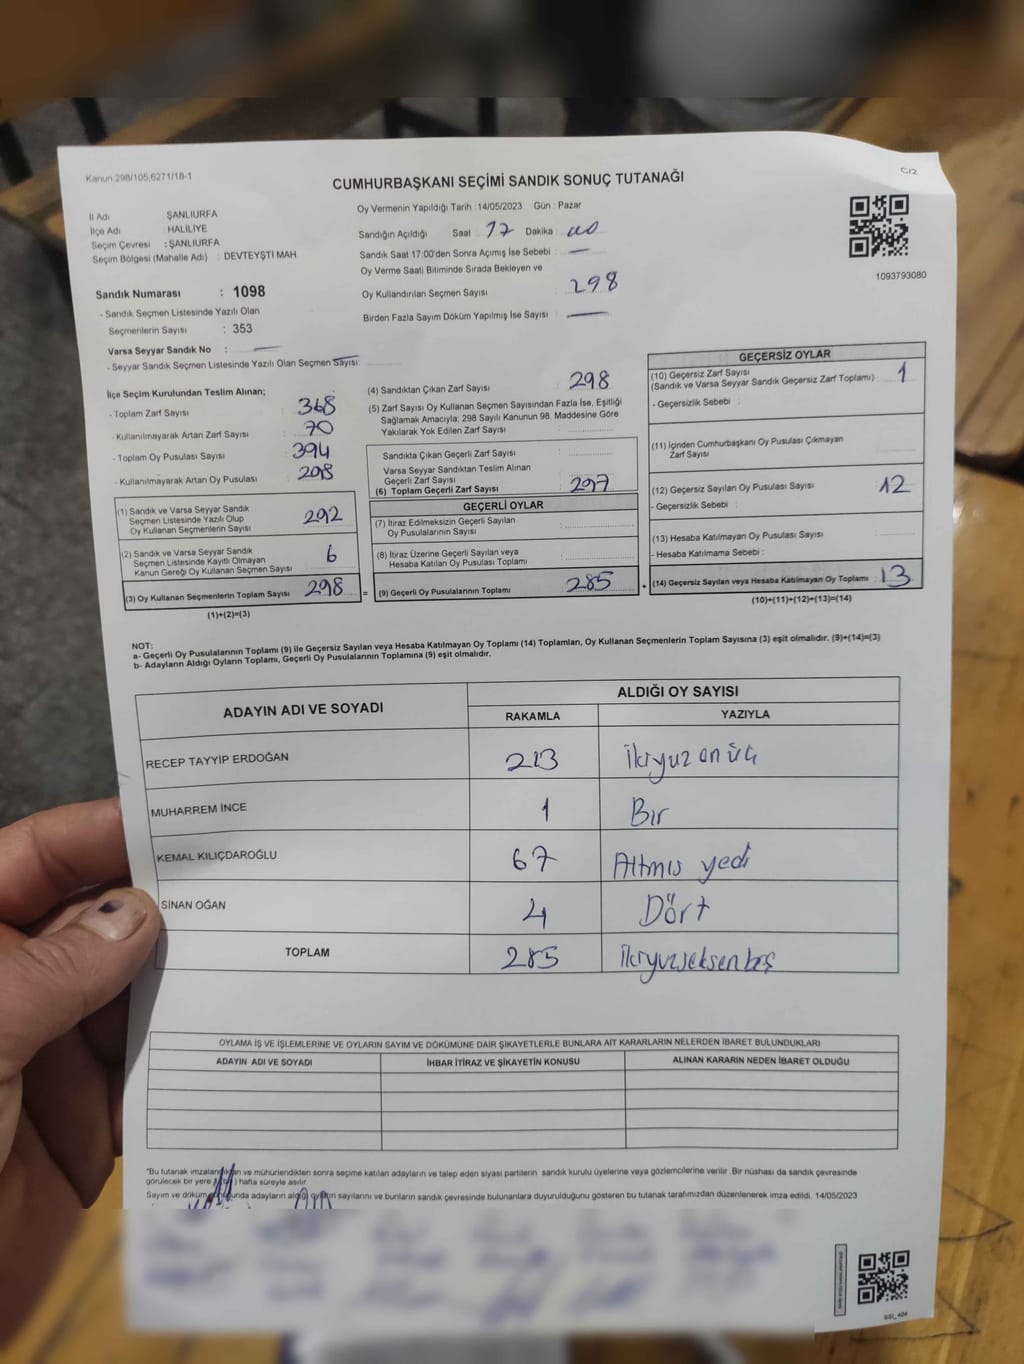 Kanun 298/105,6271/18-1
C/2
CUMHURBAŞKANI SEÇİMİ SANDIK SONUÇ TUTANAĞI
İl Adı : ŞANLIURFA
İlçe Adı : HALİLİYE
Seçim Çevresi : ŞANLIURFA
Seçim Bölgesi (Mahalle Adı) : DEVTEYŞTİ MAH
Sandık Numarası : 1098
- Sandık Seçmen Listesinde Yazılı Olan
Seçmenlerin Sayısı : 353
Varsa Seyyar Sandık No : —
- Seyyar Sandık Seçmen Listesinde Yazılı Olan Seçmen Sayısı:
Oy Vermenin Yapıldığı Tarih : 14/05/2023 Gün : Pazar
Sandığın Açıldığı Saat 17 Dakika 00
Sandık Saat 17:00'den Sonra Açımış İse Sebebi : —
Oy Verme Saati Bitiminde Sırada Bekleyen ve
Oy Kullandırılan Seçmen Sayısı : 298
Birden Fazla Sayım Döküm Yapılmış İse Sayısı : —
1093793080
İlçe Seçim Kurulundan Teslim Alınan;
- Toplam Zarf Sayısı : 368
- Kullanılmayarak Artan Zarf Sayısı : 70
- Toplam Oy Pusulası Sayısı : 394
- Kullanılmayarak Artan Oy Pusulası
(1) Sandık ve Varsa Seyyar Sandık
Seçmen Listesinde Yazılı Olup
Oy Kullanan Seçmenlerin Sayısı : 292
(2) Sandık ve Varsa Seyyar Sandık
Seçmen Listesinde Kayıtlı Olmayan
Kanun Gereği Oy Kullanan Seçmen Sayısı : 6
(3) Oy Kullanan Seçmenlerin Toplam Sayısı : 298
(1)+(2)=(3)
(4) Sandıktan Çıkan Zarf Sayısı : 298
(5) Zarf Sayısı Oy Kullanan Seçmen Sayısından Fazla İse, Eşitliği
Sağlamak Amacıyla; 298 Sayılı Kanunun 98. Maddesine Göre
Yakılarak Yok Edilen Zarf Sayısı :
Sandıkta Çıkan Geçerli Zarf Sayısı :
Varsa Seyyar Sandıktan Teslim Alınan
Geçerli Zarf Sayısı :
(6) Toplam Geçerli Zarf Sayısı : 297
GEÇERLİ OYLAR
(7) İtiraz Edilmeksizin Geçerli Sayılan
Oy Pusulalarının Sayısı :
(8) İtiraz Üzerine Geçerli Sayılan veya
Hesaba Katılan Oy Pusulası Toplamı :
= (9) Geçerli Oy Pusulalarının Toplamı : 285
GEÇERSİZ OYLAR
(10) Geçersiz Zarf Sayısı
(Sandık ve Varsa Seyyar Sandık Geçersiz Zarf Toplamı) : 1
- Geçersizlik Sebebi :
(11) İçinden Cumhurbaşkanı Oy Pusulası Çıkmayan
Zarf Sayısı :
(12) Geçersiz Sayılan Oy Pusulası Sayısı : 12
- Geçersizlik Sebebi :
(13) Hesaba Katılmayan Oy Pusulası Sayısı :
- Hesaba Katılmama Sebebi :
+ (14) Geçersiz Sayılan veya Hesaba Katılmayan Oy Toplamı : 13
(10)+(11)+(12)+(13)=(14)
NOT:
a- Geçerli Oy Pusulalarının Toplamı (9) ile Geçersiz Sayılan veya Hesaba Katılmayan Oy Toplamı (14) Toplamları, Oy Kullanan Seçmenlerin Toplam Sayısına (3) eşit olmalıdır. (9)+(14)=(3)
b- Adayların Aldığı Oyların Toplamı, Geçerli Oy Pusulalarının Toplamına (9) eşit olmalıdır.
ADAYIN ADI VE SOYADI
ALDIĞI OY SAYISI
RAKAMLA YAZIYLA
RECEP TAYYİP ERDOĞAN 213 ikiyuz on üç
MUHARREM İNCE 1 Bir
KEMAL KILIÇDAROĞLU 67 Altmıs yedi
SİNAN OĞAN 4 Dört
TOPLAM 285 ikiyuzseksen beş
OYLAMA İŞ VE İŞLEMLERİNE VE OYLARIN SAYIM VE DÖKÜMÜNE DAİR ŞİKAYETLERLE BUNLARA AİT KARARLARIN NELERDEN İBARET BULUNDUKLARI
ADAYIN ADI VE SOYADI İHBAR İTİRAZ VE ŞİKAYETİN KONUSU ALINAN KARARIN NEDEN İBARET OLDUĞU
*Bu tutanak imzalandıktan ve mühürlendikten sonra seçime katılan adayların ve talep eden siyasi partilerin sandık kurulu üyelerine veya gözlemcilerine verilir. Bir nüshası da sandık çevresinde
görülecek bir yere ) hafta süreyle asılır.
Sayım ve döküm adayların aldığı oyların sayılarını ve bunların sandık çevresinde bulunanlara duyurulduğunu gösteren bu tutanak tarafımızdan düzenlenerek imza edildi. 14/05/2023